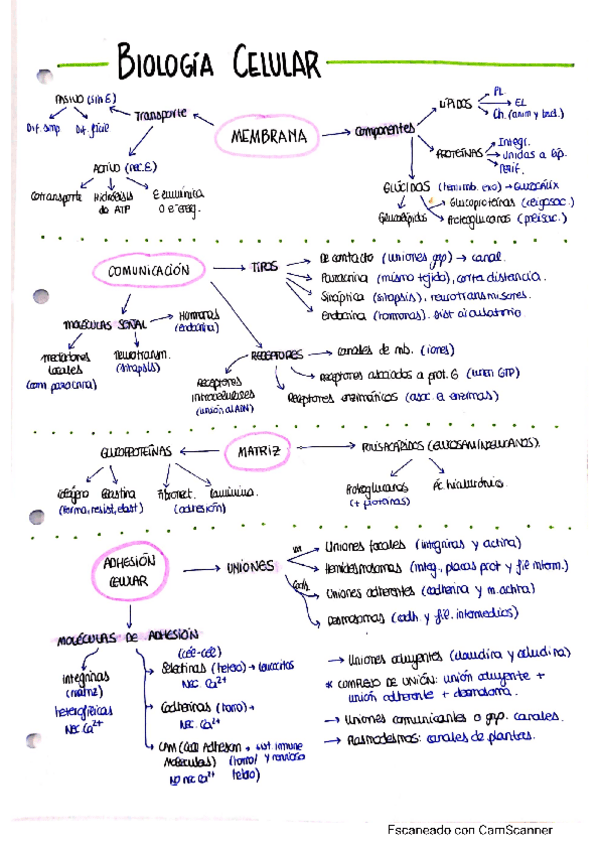 BIOLOGÍA CELULAR
PASIVO (sin E)
Transporte
Dif. simp
Dif. fácil
ACTIVO (nec. E)
Cotransporte
Hidrólisis
de ATP
E lumínica
MEMBRANA
Componentes
LÍPIDOS
PL
EL
Ch. (anim y bact.)
PROTEÍNAS
Integr.
Unidas a lip.
Perif.
GLÚCIDOS (hemimb. exo) → GLUCOCÁLIX
Glucolípidos
Glucoproteínas (oligosac.)
Proteoglucanos (polisac.)
COMUNICACIÓN
TIPOS
De contacto (uniones gap) → canal.
Paracrina (mismo tejido), corta distancia.
Sináptica (sinapsis). neurotransmisores.
Endocrina (hormonas). sist circulatorio
MOLÉCULAS SEÑAL
Hormonas
(endocrina)
mediadores
locales
(com paracrina)
neurotransm.
(sinapsis)
RECEPTORES
canales de mb. (iones)
Receptores asociados a prot. G (unen GTP)
Receptores enzimáticos (asoc. a enzimas)
Receptores
intracelulares
(unión al ADN)
MATRIZ
GLUCOPROTEÍNAS
colágeno
Elastina
(forma, resist, elast)
Fibronect.
Laminina.
(adhesión)
POLISACÁRIDOS (GLUCOSAMINOGLUCANOS).
Proteoglucanos
(+ proteínas)
Ác hialurónico.
ADHESIÓN
CELULAR
UNIONES
Uniones focales (integrinas y actina)
Hemidesmosomas (integ., placas prot y fil interm.)
Uniones adherentes (cadherina y m. actina)
Desmosomas (cadh. y fil. intermedios)
MOLÉCULAS DE ADHESIÓN
(cél-cél)
Integrinas
(matriz)
heterofílicas
Nec. Ca²⁺
Selectinas (hetero) → Leucocitos
Nec. Ca²⁺
Cadherinas (homo) →
Nec. Ca²⁺
CAM (Cell Adhesion → sist. inmune
Molecules) (homo/ y nervioso
NO nec Ca²⁺ hetero)
→ Uniones ocluyentes (claudina y ocludina)
* COMPLEJO DE UNIÓN: unión ocluyente +
unión adherente + desmosoma.
→ Uniones comunicantes o gap. canales.
→ Plasmodesmos: canales de plantas.
Escaneado con CamScanner